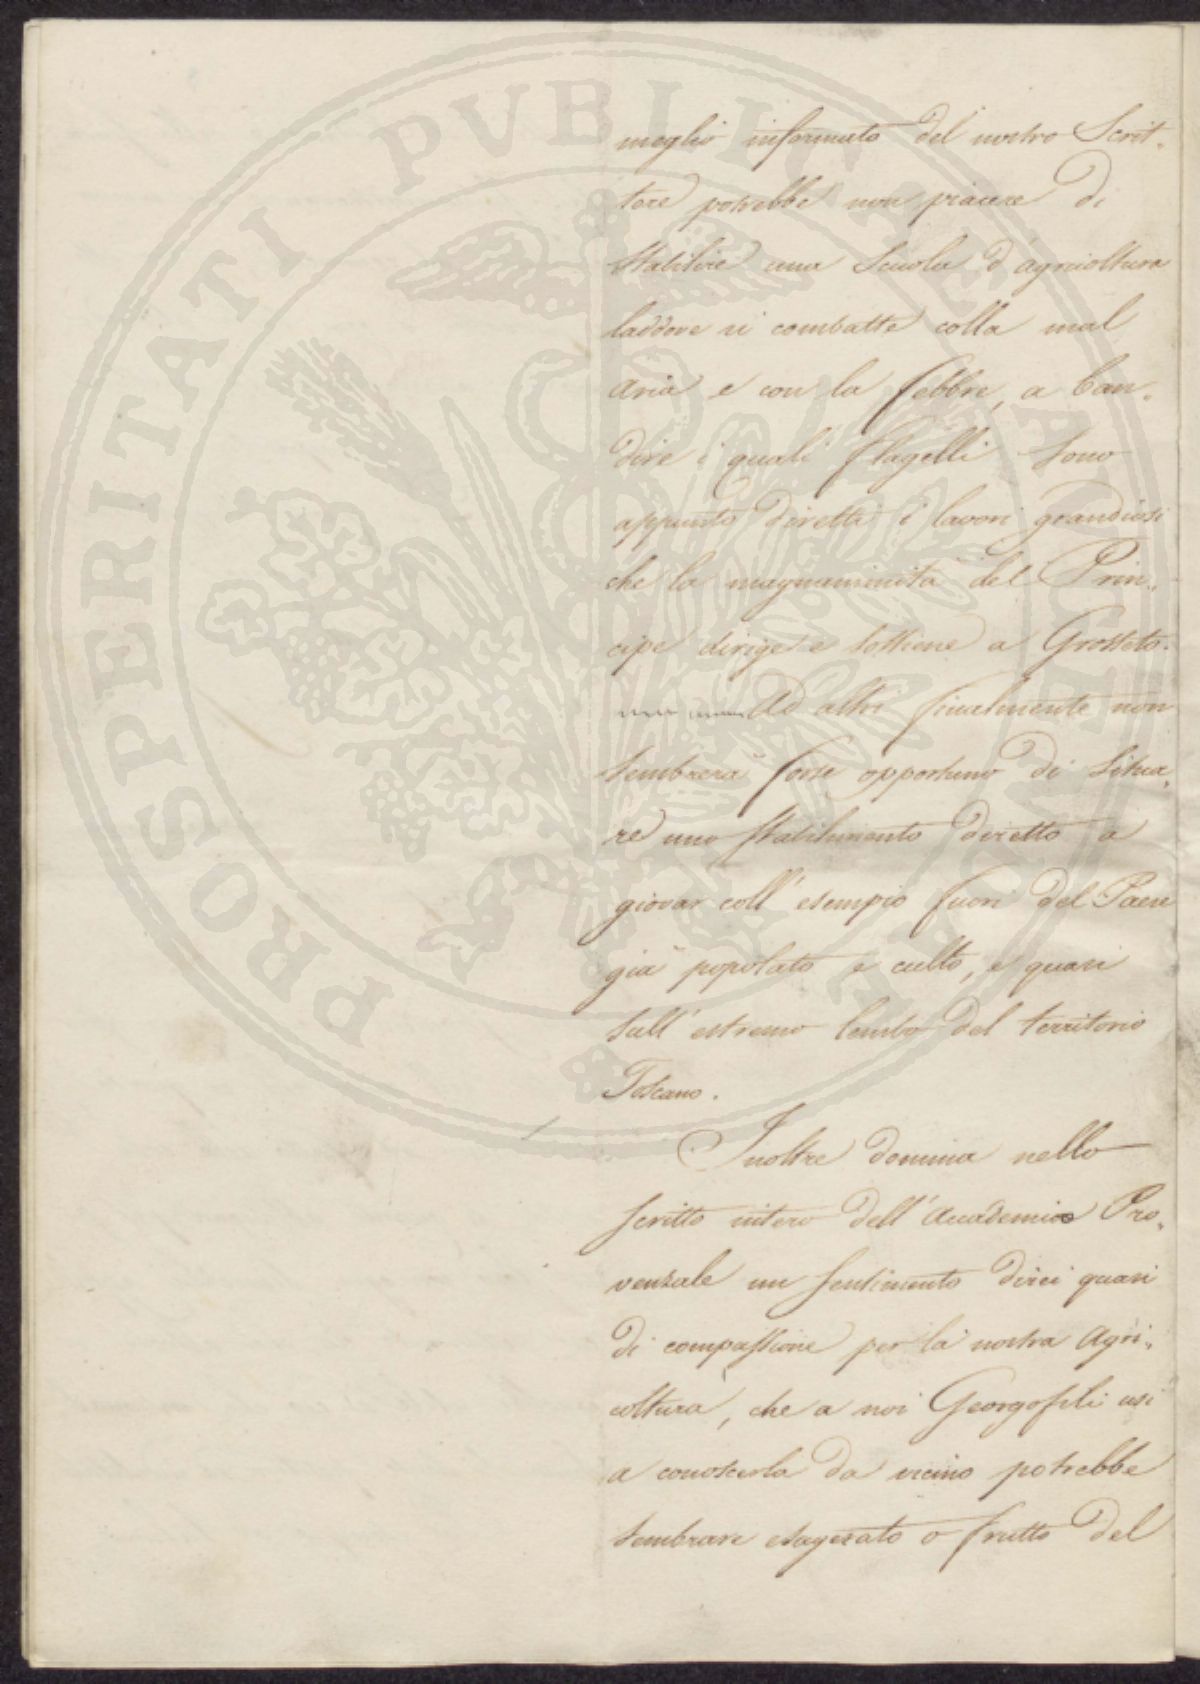 meglio informato del nostro Scrit-
tore potrebbe non piacere di
stabilire una Scuola d'agricoltura
laddove si combatte colla mal
aria e con la febbre, a ban-
dire i quali flagelli sono
appunto diretti i lavori grandiosi
che la magnanimità del Prin-
cipe dirige e sostiene a Grosseto.
Ad altri finalmente non
sembrerà forse opportuno di situa-
re uno stabilimento diretto a
giovar coll'esempio fuori del Paese
già popolato e culto, e quasi
sull'estremo lembo del territorio
Toscano.
Inoltre domina nello
scritto intero dell'Accademico Pro-
venzale un sentimento direi quasi
di compassione per la nostra Agri-
coltura, che a noi Georgofili usi
a conoscerla da vicino potrebbe
sembrare esagerato o frutto del
PROSPERITATI PUBLICAE AUGENDAE